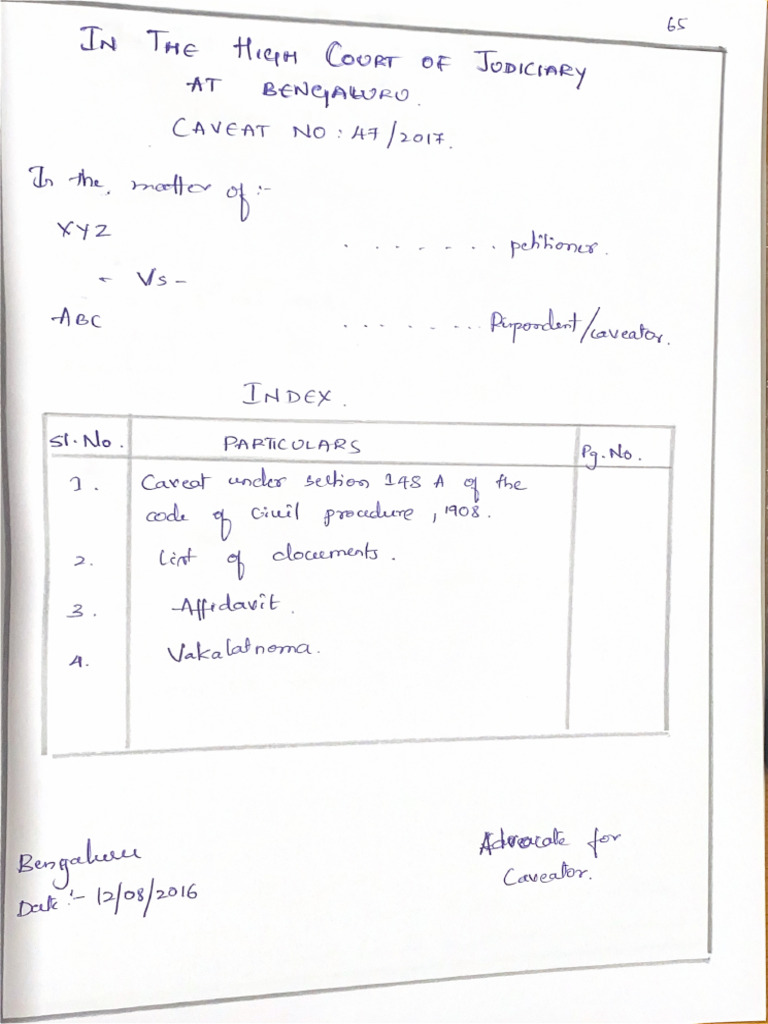 65
IN THE HIGH COURT OF JUDICIARY
AT BENGALURU.
CAVEAT NO : 47/2017.
In the, matter of :-
XYZ
. . . . . . . petitioner.
- Vs -
ABC
. . . . . . . Respondent/caveator.
INDEX.
Sl. No. PARTICULARS Pg. No.
1. Caveat under section 148 A of the
code of civil procedure, 1908.
2. List of documents.
3. Affidavit.
4. Vakalatnama.
Bengaluru
Advocate for
Caveator.
Date :- 12/08/2016